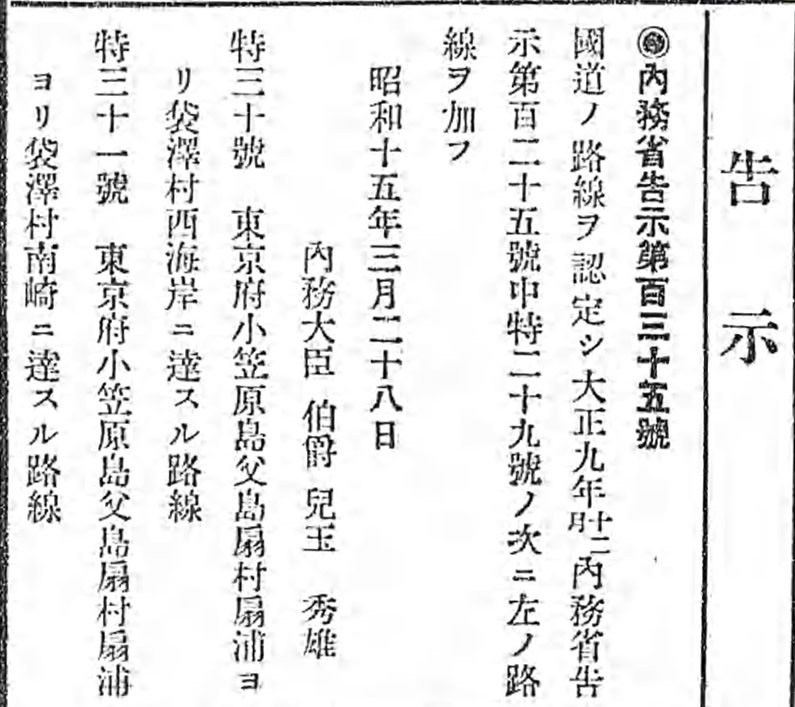 告示
◉內務省告示第百三十五號
國道ノ路線ヲ認定シ大正九年十二月內務省告
示第百二十五號中特二十九號ノ次ニ左ノ路
線ヲ加フ
昭和十五年三月二十八日
內務大臣 伯爵 兒玉 秀雄
特三十號 東京府小笠原島父島扇村扇浦ヨ
リ袋澤村西海岸ニ達スル路線
特三十一號 東京府小笠原島父島扇村扇浦
ヨリ袋澤村南崎ニ達スル路線